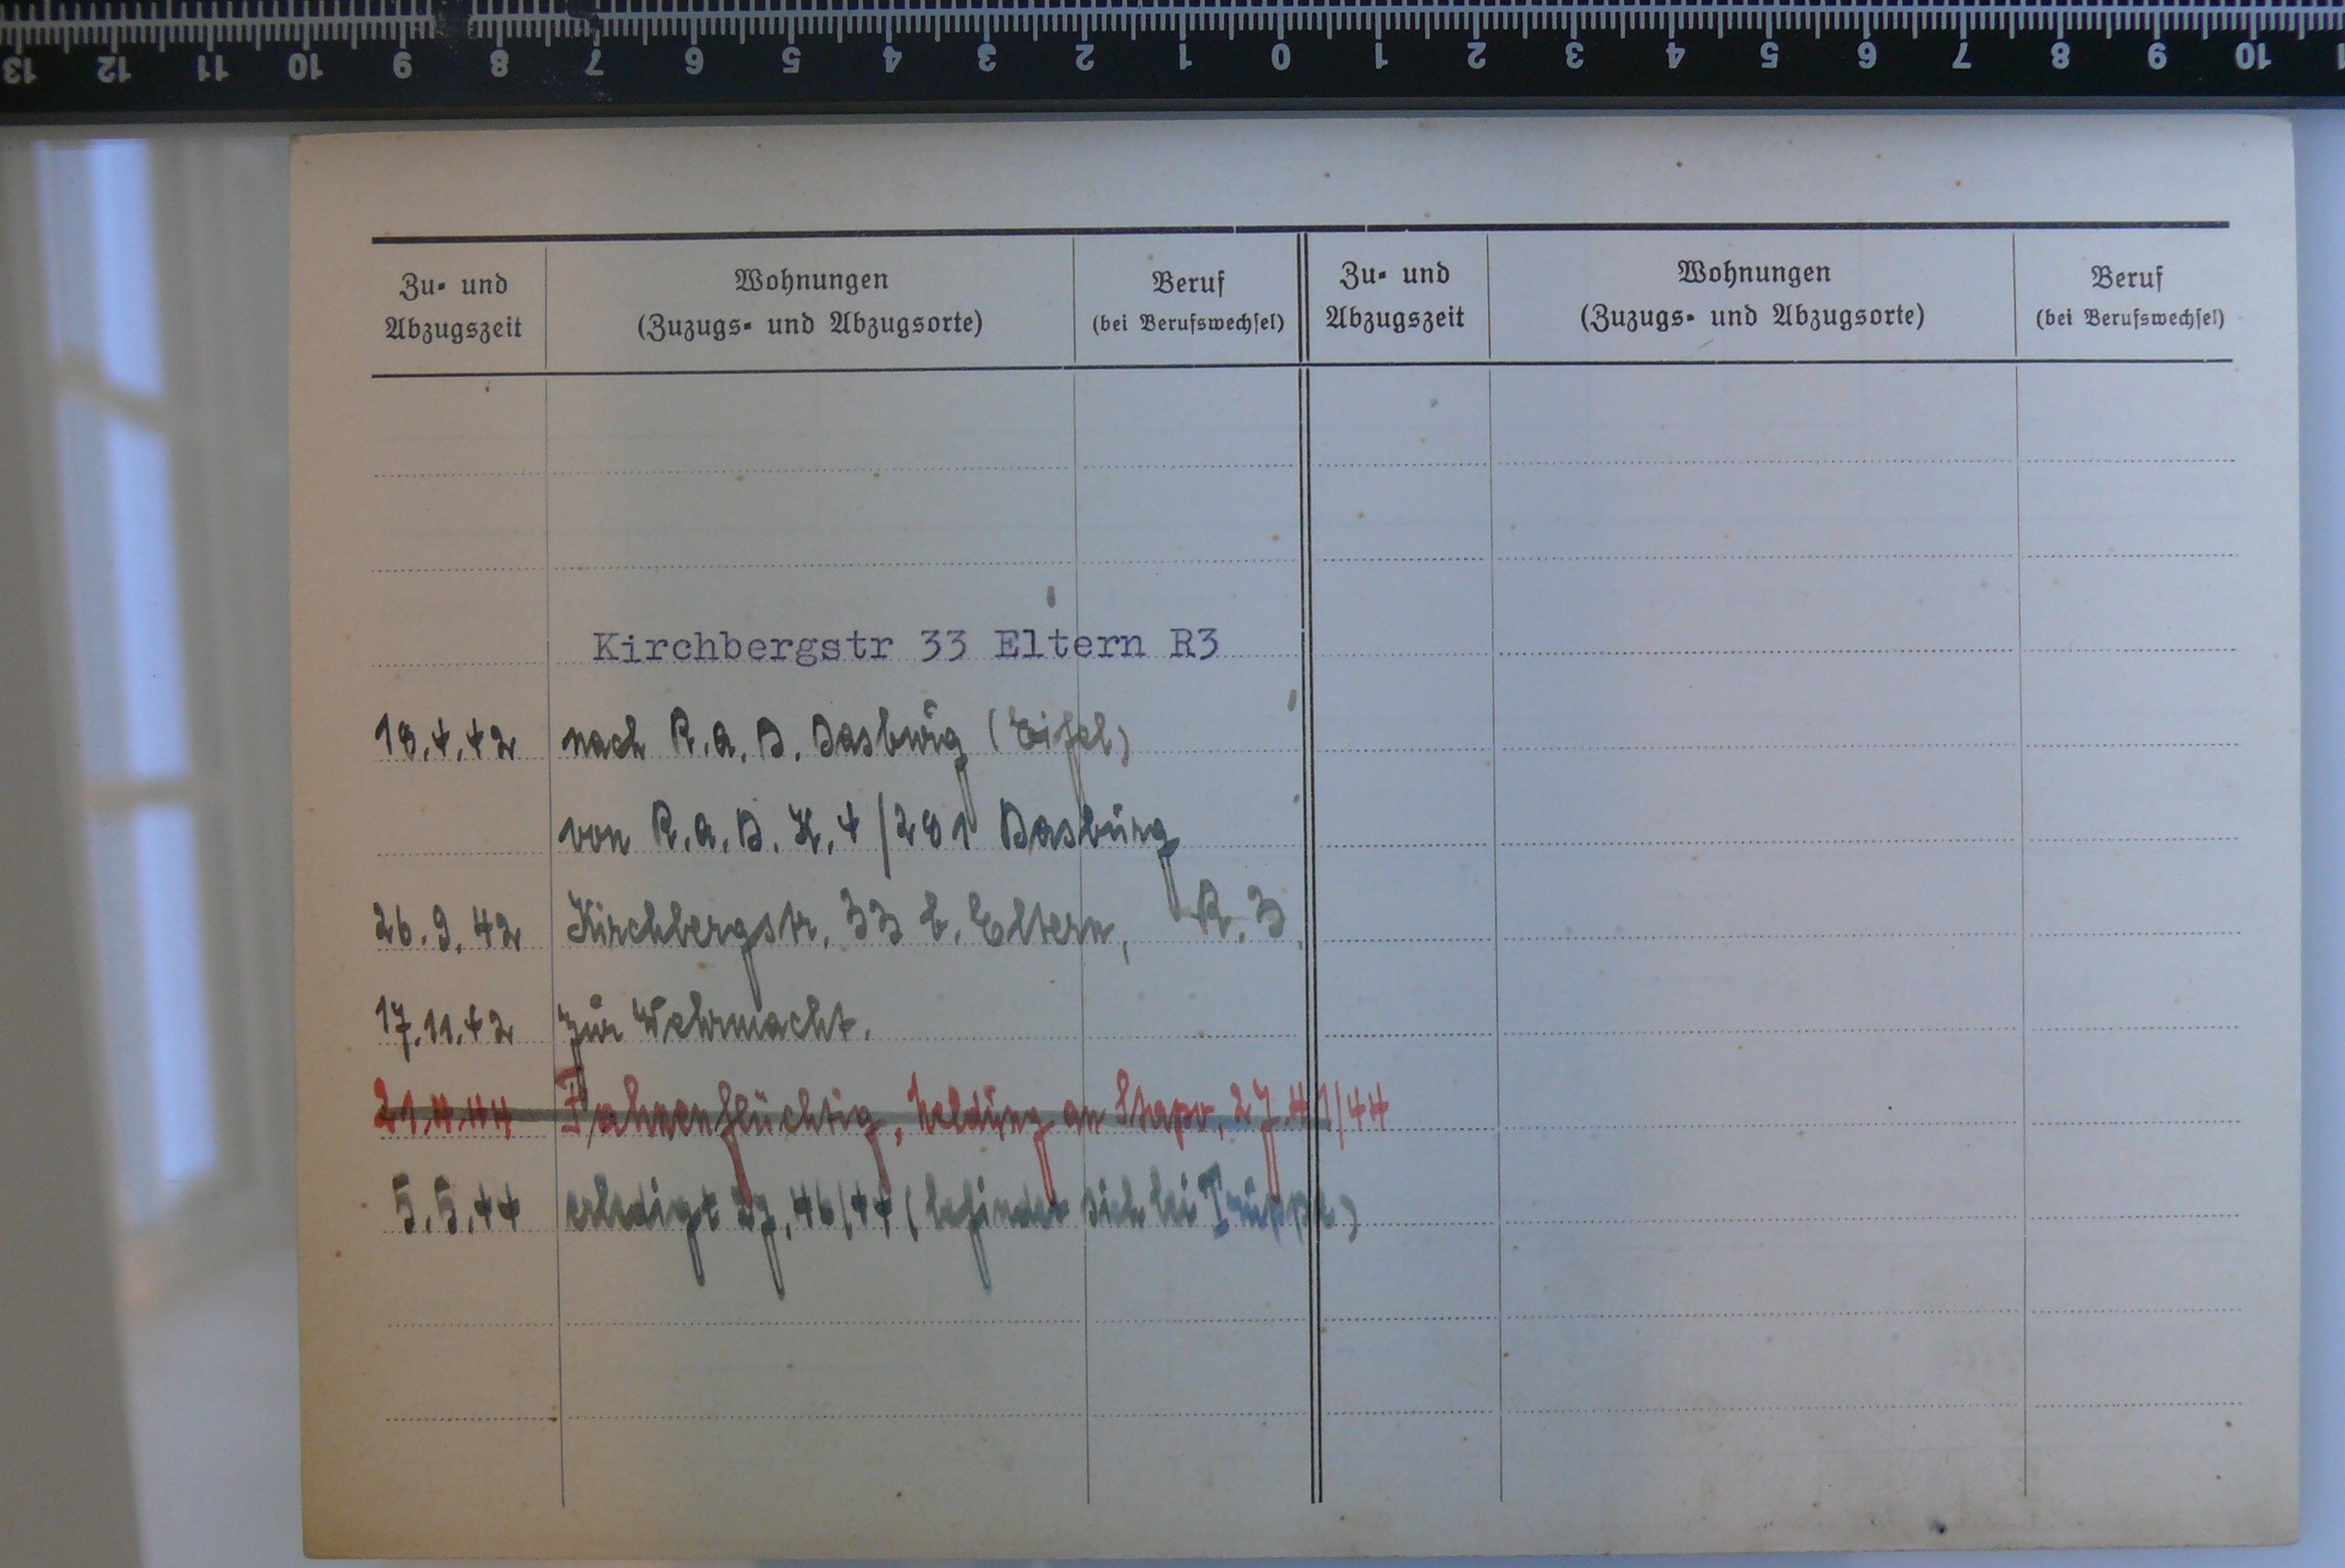 13 12 11 10 9 8 7 6 5 4 3 2 1 0 1 2 3 4 5 6 7 8 9 10
Zu- und Abzugszeit
Wohnungen (Zuzugs- und Abzugsorte)
Beruf (bei Berufswechsel)
Zu- und Abzugszeit
Wohnungen (Zuzugs- und Abzugsorte)
Beruf (bei Berufswechsel)
Kirchbergstr 33 Eltern R3
18.4.42 nach R.A.D. Dasburg (Eifel)
von R.A.D. K.4/281 Dasburg
26.9.42 Kirchbergstr. 33 b. Eltern, R.3.
17.11.42 zur Wehrmacht.
21.4.44 Fahnenflüchtig, Meldung an Stapo,
5.5.44 erledigt 46/44 (befindet sich bei Truppe)